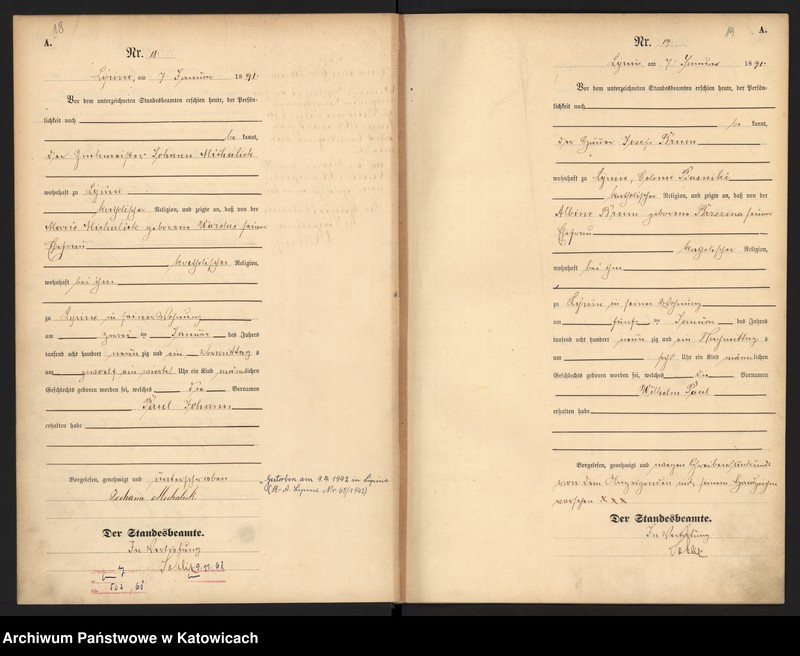 18
A.
Nr. 18.
Lipine, am 7 Januar 1891.
Vor dem unterzeichneten Standesbeamten erschien heute, der Persön-
lichkeit nach
be kannt,
der Zinkmeister Johann Michalick
wohnhaft zu Lipine
katholischer Religion, und zeigte an, daß von der
Marie Michalick geborene seiner
Ehefrau
katholischer Religion,
wohnhaft bei ihm
zu Lipine in seiner Wohnung
am zwei ten Januar des Jahres
tausend acht hundert neun zig und ein Vormittag s
um zwoelf ein viertel Uhr ein Kind männlichen
Geschlechts geboren worden sei, welches die Vornamen
Paul Johann
erhalten habe
Vorgelesen, genehmigt und unterschrieben
Johann Michalik.
Gestorben am 9.4.1942 in Lipine
(St. A. Lipine Nr. 65/1942)
Der Standesbeamte.
In Vertretung
19
A.
Nr. 19.
Lipine am 7 Januar 1891.
Vor dem unterzeichneten Standesbeamten erschien heute, der Persön-
lichkeit nach
be kannt,
der Häuer Josef Brum
wohnhaft zu Lipine, Colonie Piasniki
katholischer Religion, und zeigte an, daß von der
Albine Brum geborene Brzezina seiner
Ehefrau
katholischer Religion,
wohnhaft bei ihm
zu Lipine in seiner Wohnung
am fünf ten Januar des Jahres
tausend acht hundert neun zig und ein Nachmittag s
um Uhr ein Kind männlichen
Geschlechts geboren worden sei, welches die Vornamen
Wilhelm Paul
erhalten habe
Vorgelesen, genehmigt und wegen Schreibensunkunde
von dem Anzeigenden mit seinem Handzeichen
versehen xxx
Der Standesbeamte.
In Vertretung
Archiwum Państwowe w Katowicach